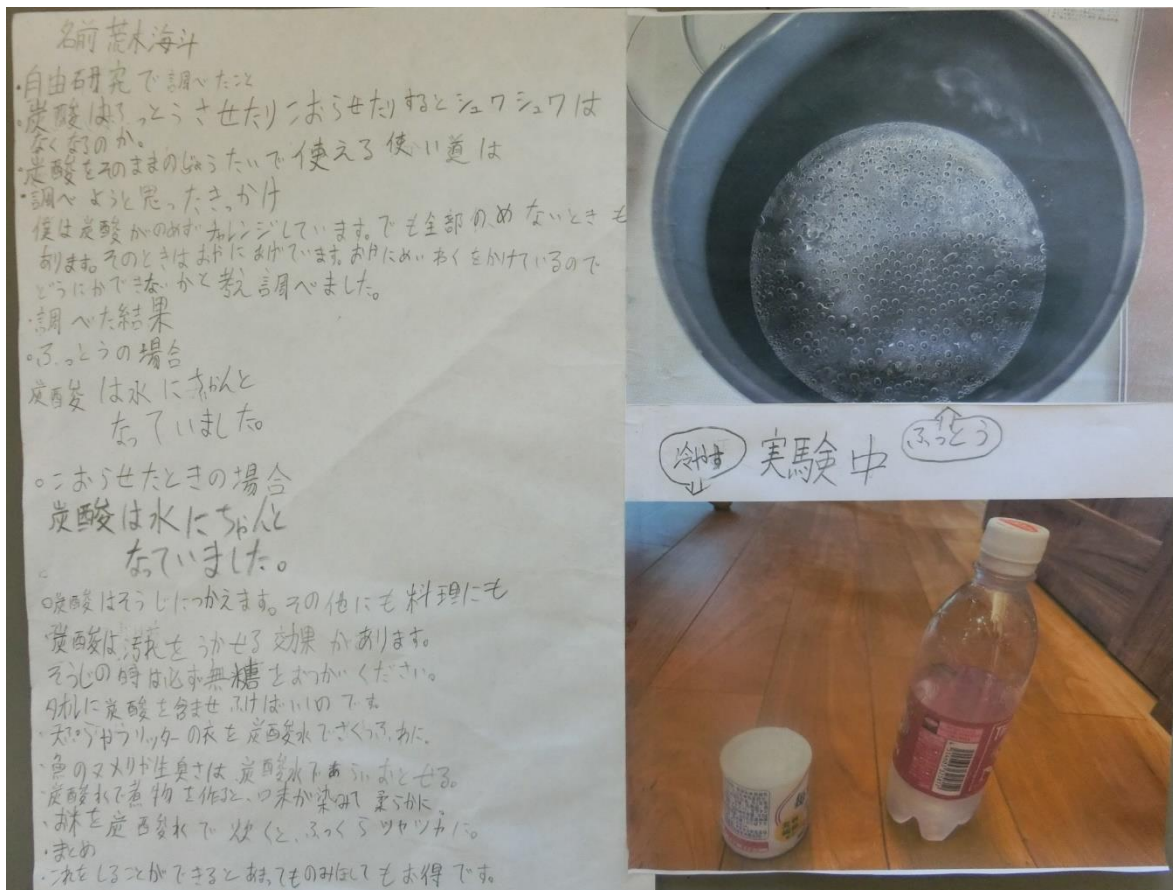 名前 荒木海斗
・自由研究で調べたこと
・炭酸はふっとうさせたりこおらせたりするとシュワシュワは
なくなるのか。
・炭酸をそのままのじょうたいで使える使い道は
・調べようと思ったきっかけ
僕は炭酸がのめずチャレンジしています。でも全部のめないときも
あります。そのときはおやにあげています。おやにめいわくをかけているので
どうにかできないかと考え調べました。
・調べた結果
○ふっとうの場合
炭酸は水にちゃんと
なっていました。
○こおらせたときの場合
炭酸は水にちゃんと
なっていました。
○炭酸はそうじにつかえます。その他にも料理にも
炭酸は汚れをうかせる効果があります。
そうじの時は必ず無糖をおつかいください。
タオルに炭酸を含ませふけばいいのです。
・天ぷらやフリッターの衣を炭酸水でさくっふわに。
・魚のヌメリや生臭さは炭酸水であらいおとせる。
・炭酸水で煮物を作ると、味が染みて柔らかに
・お米を炭酸水で炊くと、ふっくらツヤツヤに。
・まとめ
・これをしることができるとあまってものみほしてもお得です。
ふっとう
冷やす
実験中